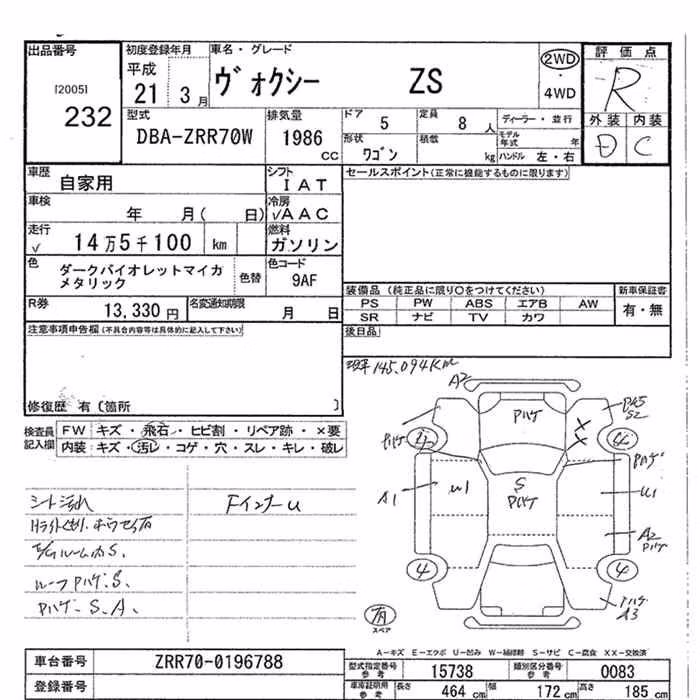 出品番号
[2005]
232
初度登録年月
平成
21 3月
車名・グレード
ヴォクシー ZS
2WD
・
4WD
評価点
R
外装 内装
D C
型式
DBA-ZRR70W
排気量
1986
CC
ドア 5
定員 8 人
ディーラー・並行
形状 ワゴン
積載 kg
モデル年式 年
ハンドル 左・右
車歴 自家用
シフト
I A T
セールスポイント(正常に機能するものに限ります)
車検 年 月( 日)
冷房
√A A C
走行
√ 14万5千100 km
燃料
ガソリン
色 ダークバイオレットマイカ
メタリック
色替
色コード
9AF
装備品 (純正品に限り○をつけてください)
新車保証書
PS PW ABS エアB AW
SR ナビ TV カワ
有・無
R券 13,330 円
名変通知期限 月 日
後日品
注意事項申告欄(不具合内容等は具体的に記入して下さい)
修復歴 有 〔箇所 〕
145,094Km
検査員
記入欄
FW キズ ・ 飛石 ・ ヒビ割 ・ リペア跡 ・ ×要
内装 キズ ・ 汚レ ・ コゲ ・ 穴 ・ スレ ・ キレ ・ 破レ
シート汚れ
FインナーU
ルーフPハゲ.S.
Pハゲ.S.A.
A2
Pハゲ
S2
4
4
Pハゲ
A1
W1
S
Pハゲ
U1
A2
Pハゲ
4
4
A3
有
スペア
A−キズ E−エクボ U−凹み W−補修跡 S−サビ C−腐食 XX−交換済
車台番号 ZRR70-0196788
登録番号
型式指定番号
参考
15738
類別区分番号
参考
0083
車庫証明用
参考
長さ 464 cm
幅 172 cm
高さ 185 cm